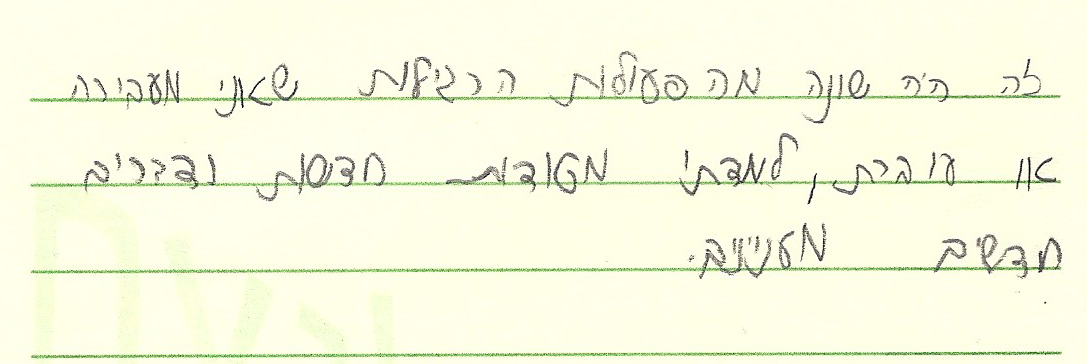 זה היה שונה מה פעולות הרגילות שאני מעבירה
או עוברת, למדתי מטודות חדשות ודברים
חדשים מעניינים.